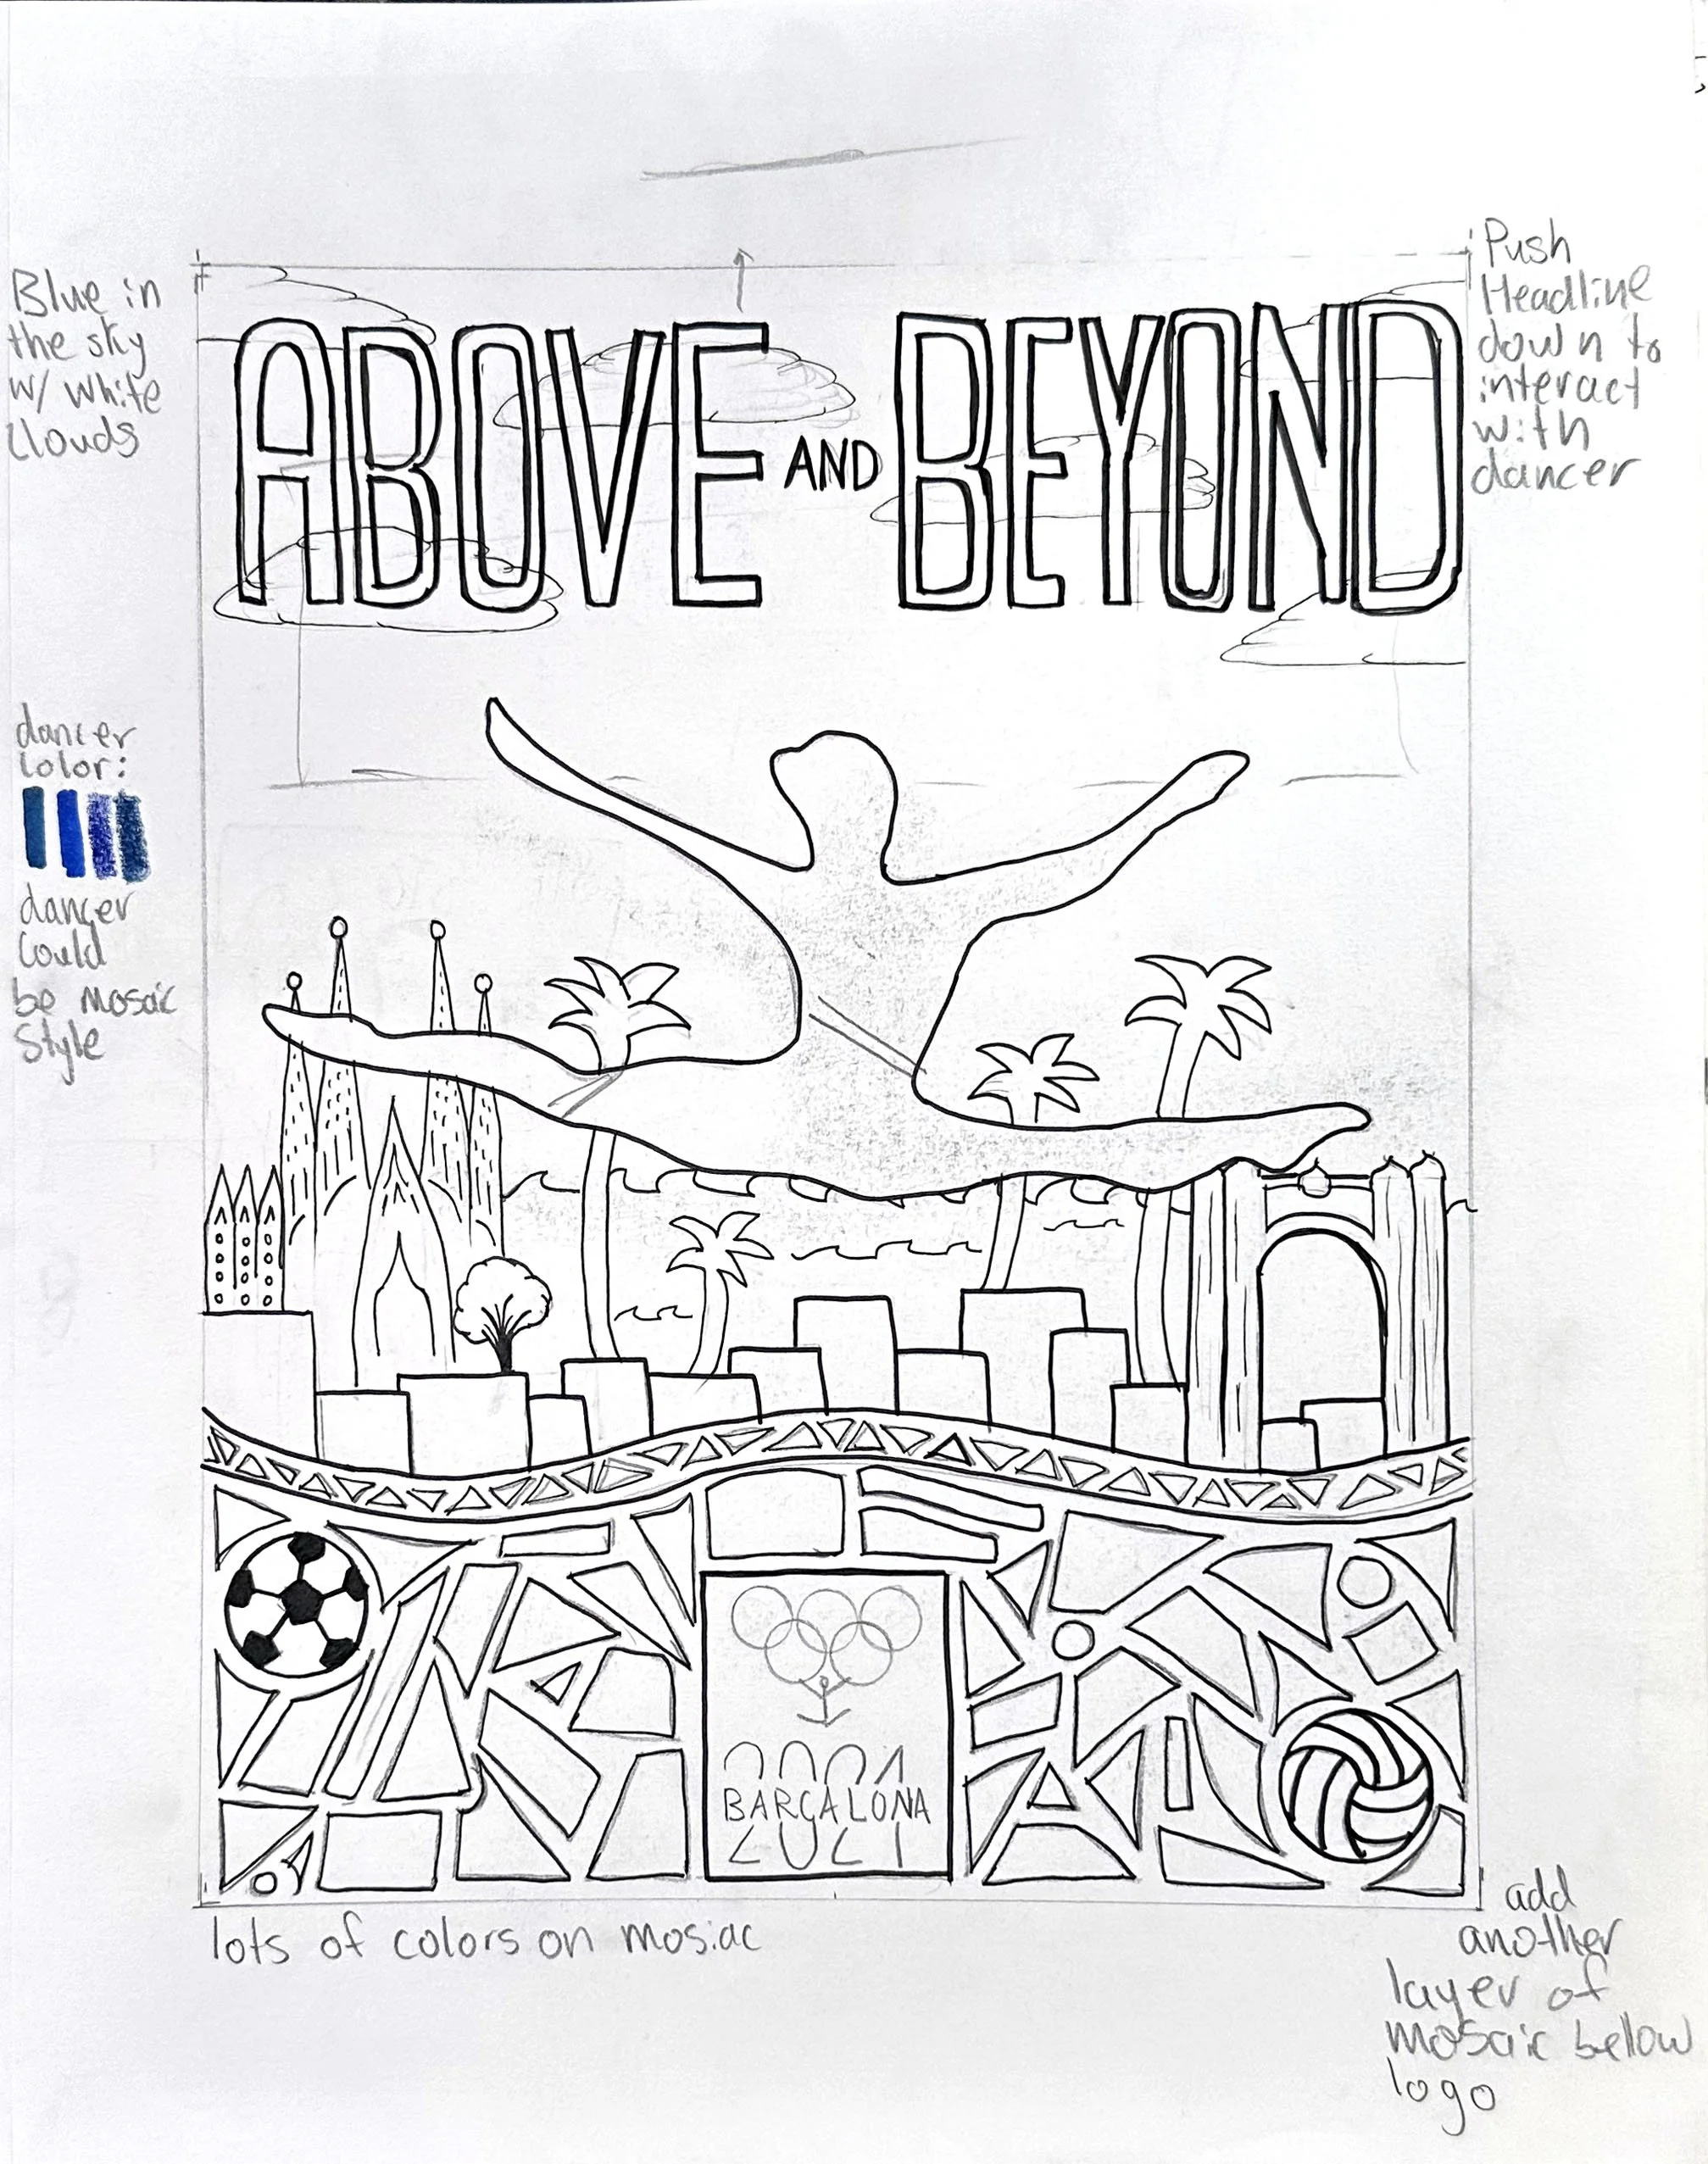 Push
Headline
down to
interact
with
dancer
Blue in
the sky
w/ white
clouds
ABOVE AND BEYOND
dancer
color:
dancer
could
be mosaic
style
BARCALONA
lots of colors on mosiac
add
another
layer of
mosaic below
logo